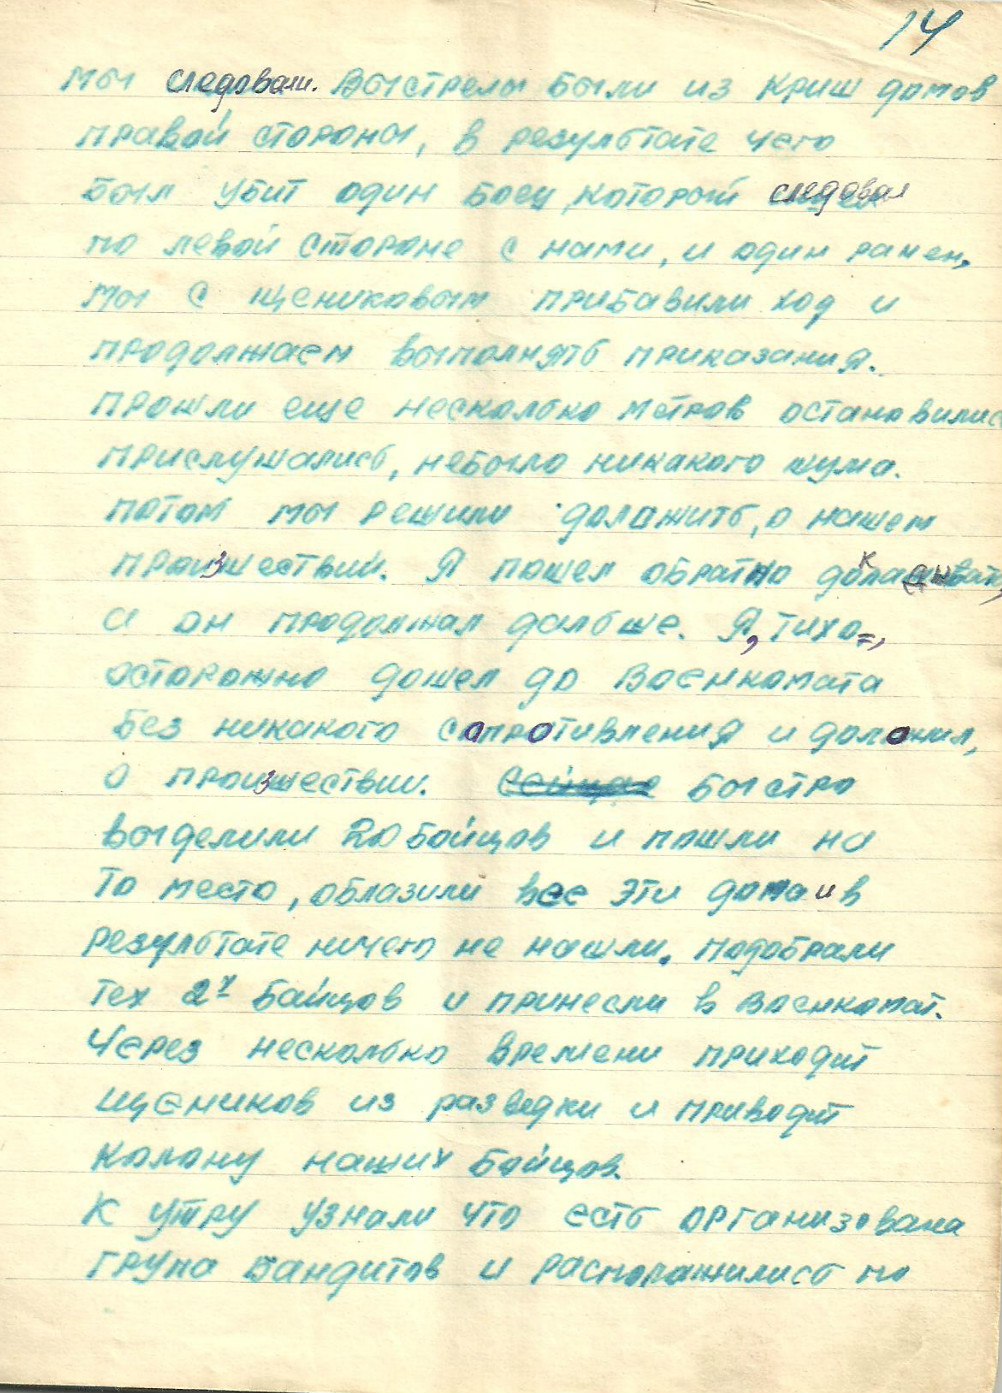 14
мы следовали. Выстрелы были из криш домов
правой стороны, в результате чего
был убит один боец, который следовал
по левой стороне с нами, и один ранен,
мы с Щениковым прибавили ход и
продолжаем выполнять приказания.
Прошли еще несколько метров остановились
прислушались, небыло никакого шума.
потом мы решили доложить, о нашем
произшествии. Я пошел обратно
а он продолжал дальше. Я, тихо=,
осторожно дошел до Военкомата
Без никакого сопротивления и доложил,
о произшествии. Сейчас быстро
выделили 20 бойцов и пошли на
то место, облазили все эти дома и в
результате ничего не нашли. подобрали
тех 2х бойцов и принесли в военкомат.
Через несколько времени приходит
Щеников из разведки и приводит
колону наших бойцов.
К утру узнали что есть организована
група бандитов и расположились по